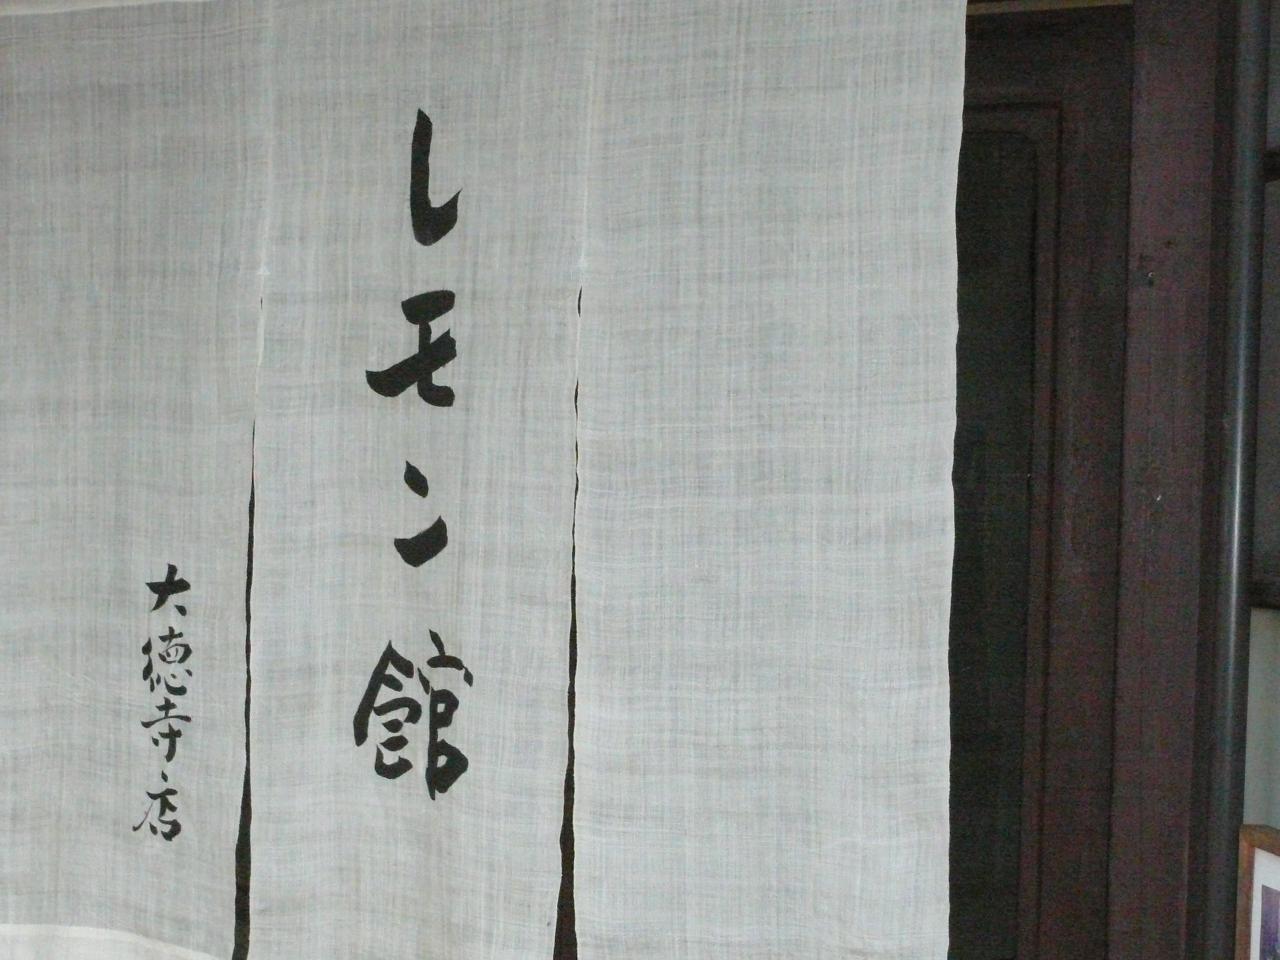 レモン館
大徳寺店